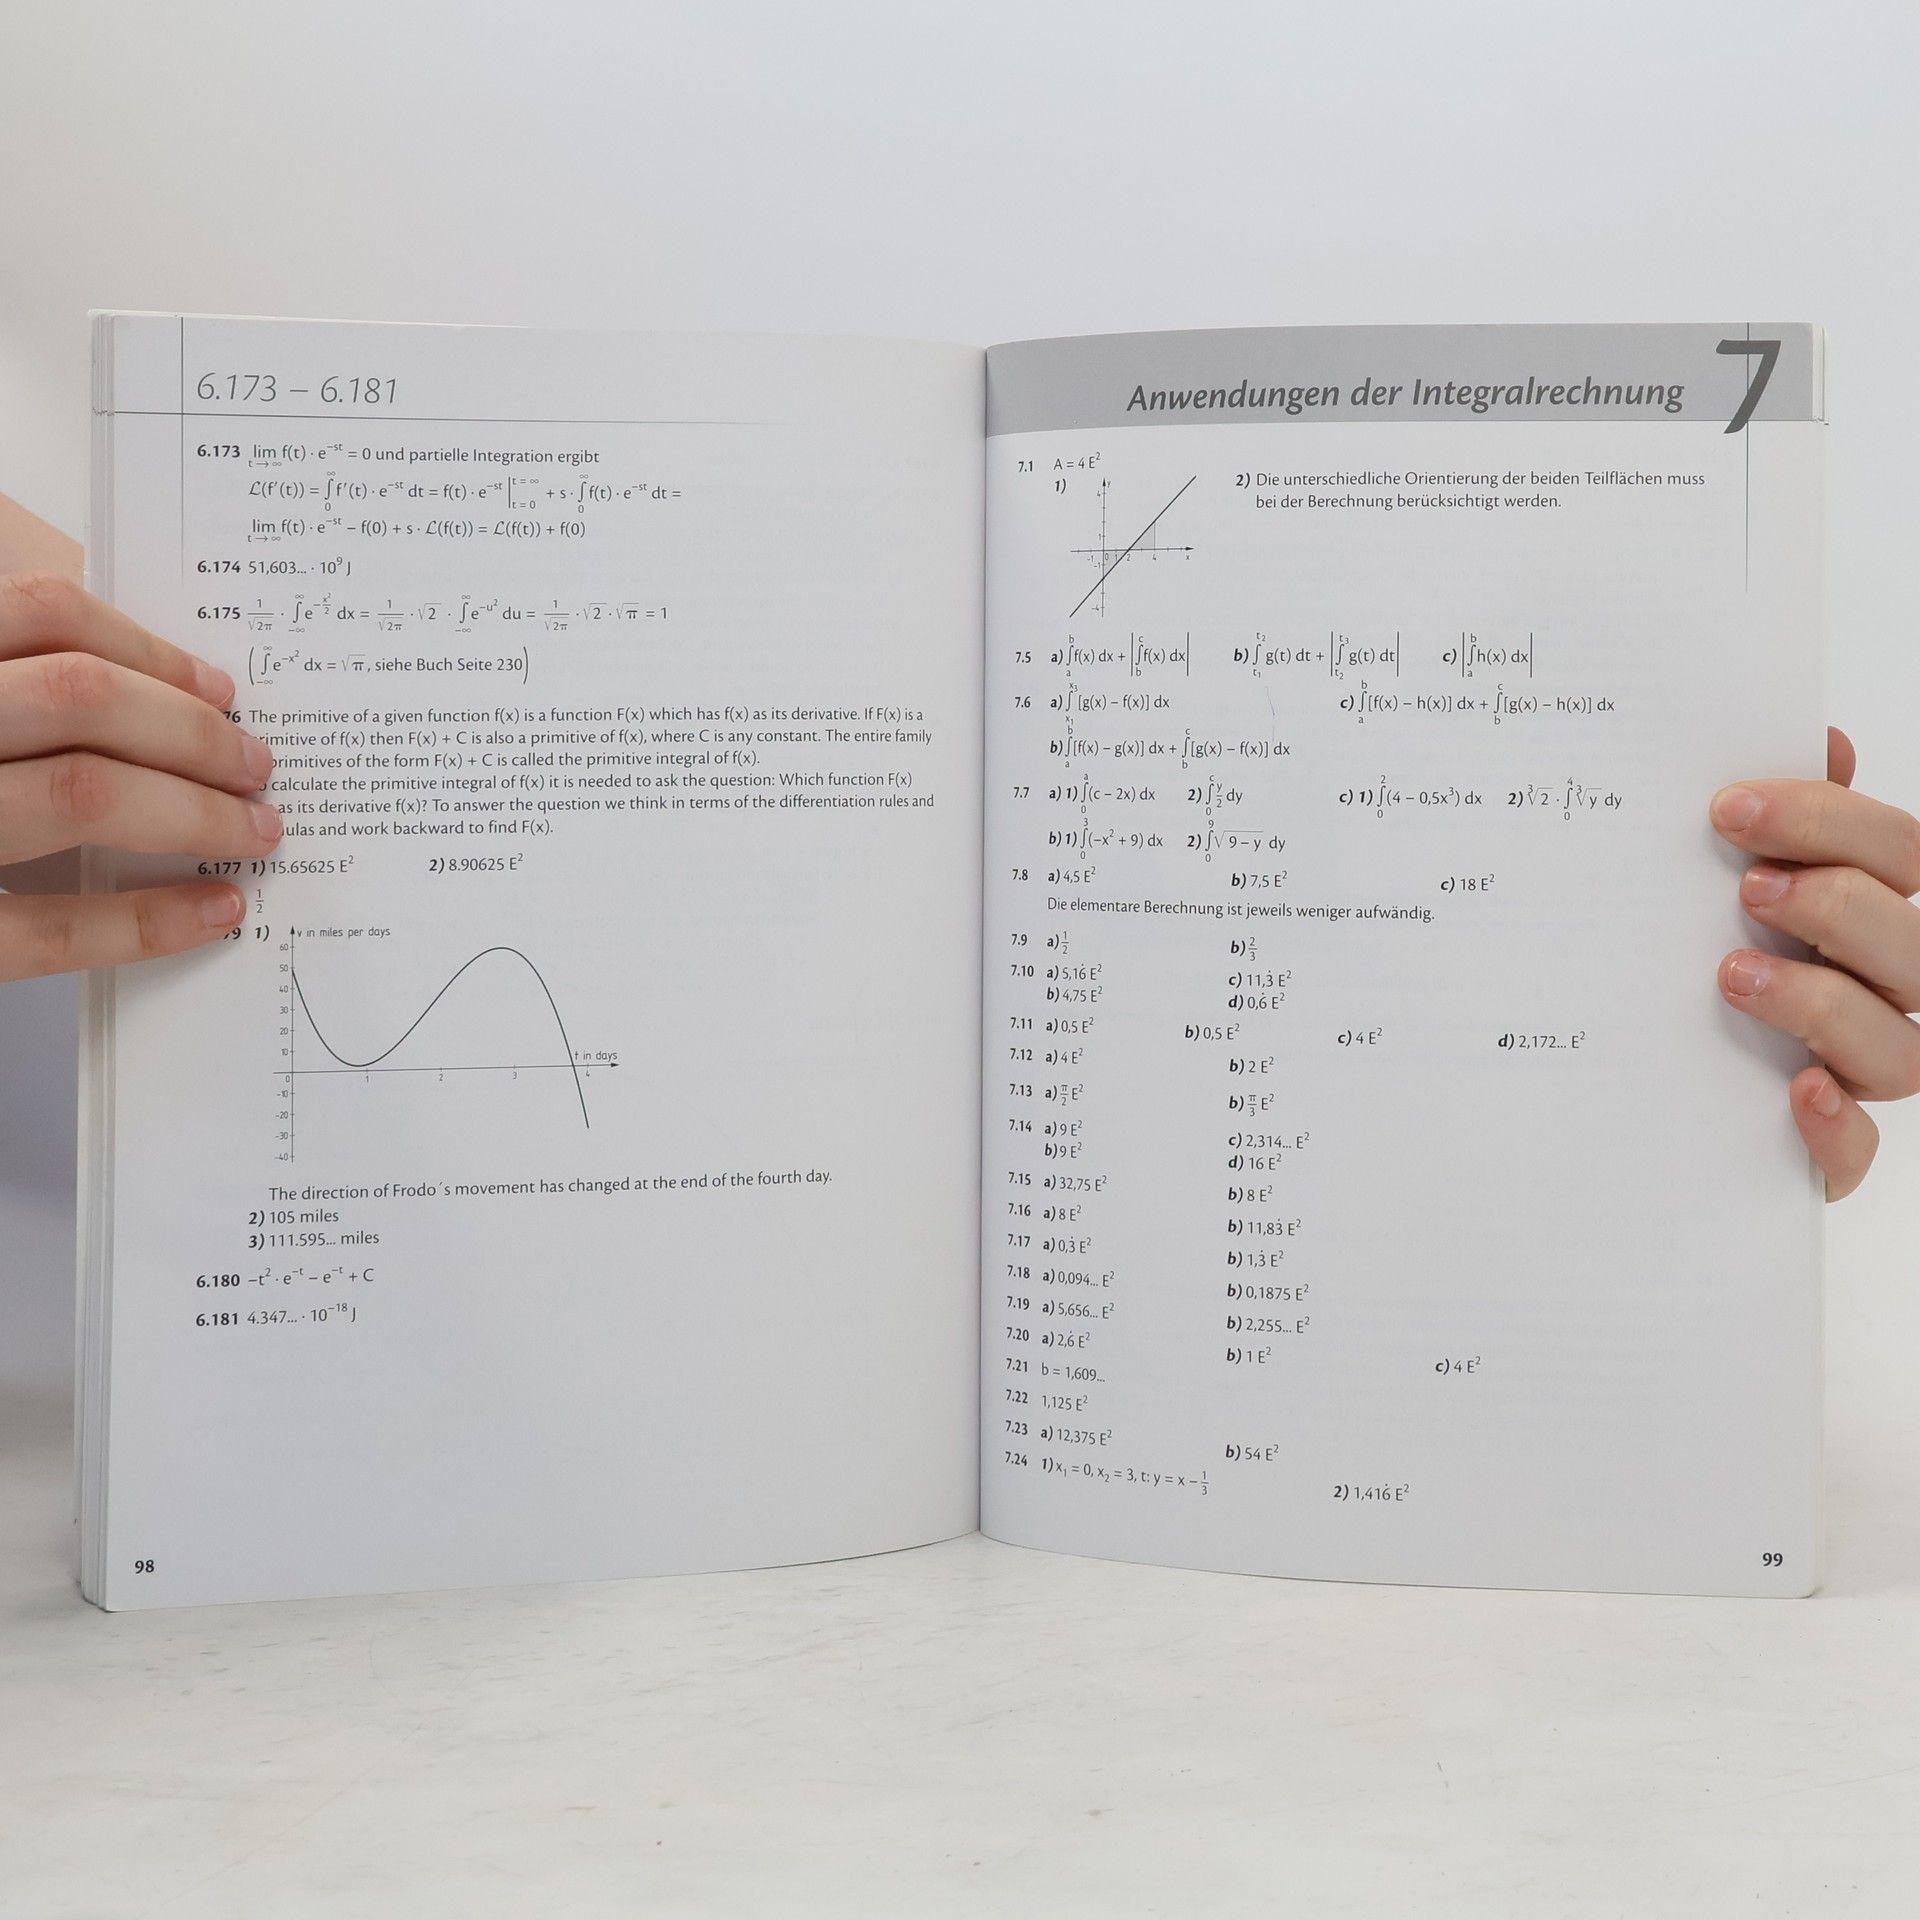 6.173 – 6.181
6.173 lim f(t) · e⁻ˢᵗ = 0 und partielle Integration ergibt
t → ∞
ℒ(f′(t)) = ∫₀^∞ f′(t) · e⁻ˢᵗ dt = f(t) · e⁻ˢᵗ |ₜ₌₀^(t = ∞) + s · ∫₀^∞ f(t) · e⁻ˢᵗ dt =
lim f(t) · e⁻ˢᵗ – f(0) + s · ℒ(f(t)) = ℒ(f(t)) + f(0)
t → ∞
6.174 51,603... · 10⁹ J
6.175 1/√2π · ∫₋∞^∞ e^(–x²/2) dx = 1/√2π · √2 · ∫₋∞^∞ e^(–u²) du = 1/√2π · √2 · √π = 1
(∫₋∞^∞ e^(–x²) dx = √π, siehe Buch Seite 230)
76 The primitive of a given function f(x) is a function F(x) which has f(x) as its derivative. If F(x) is a
rimitive of f(x) then F(x) + C is also a primitive of f(x), where C is any constant. The entire family
primitives of the form F(x) + C is called the primitive integral of f(x).
calculate the primitive integral of f(x) it is needed to ask the question: Which function F(x)
as its derivative f(x)? To answer the question we think in terms of the differentiation rules and
ulas and work backward to find F(x).
6.177 1) 15.65625 E² 2) 8.90625 E²
1/2
79 1)
v in miles per days
60
50
40
30
20
10
t in days
0 1 2 3 4
-10
-20
-30
-40
The direction of Frodo´s movement has changed at the end of the fourth day.
2) 105 miles
3) 111.595... miles
6.180 –t² · e⁻ᵗ – e⁻ᵗ + C
6.181 4.347... · 10⁻¹⁸ J
98
Anwendungen der Integralrechnung 7
7.1 A = 4 E²
1)
y
4
1
-1 0 1 2 4 x
-1
-4
2) Die unterschiedliche Orientierung der beiden Teilflächen muss
bei der Berechnung berücksichtigt werden.
7.5 a) ∫ₐ^b f(x) dx + |∫_b^c f(x) dx| b) ∫_t₁^t₂ g(t) dt + |∫_t₂^t₃ g(t) dt| c) |∫ₐ^b h(x) dx|
7.6 a) ∫_x₁^x₃ [g(x) – f(x)] dx c) ∫ₐ^b [f(x) – h(x)] dx + ∫_b^c [g(x) – h(x)] dx
b) ∫ₐ^b [f(x) – g(x)] dx + ∫_b^c [g(x) – f(x)] dx
7.7 a) 1) ∫₀^a (c – 2x) dx 2) ∫₀^c y/2 dy c) 1) ∫₀² (4 – 0,5x³) dx 2) ∛2 · ∫₀⁴ ∛y dy
b) 1) ∫₀³ (–x² + 9) dx 2) ∫₀⁹ √9 – y dy
7.8 a) 4,5 E² b) 7,5 E² c) 18 E²
Die elementare Berechnung ist jeweils weniger aufwändig.
7.9 a) 1/2 b) 2/3
7.10 a) 5,16̇ E² c) 11,3̇ E²
b) 4,75 E² d) 0,6̇ E²
7.11 a) 0,5 E² b) 0,5 E² c) 4 E² d) 2,172... E²
7.12 a) 4 E² b) 2 E²
7.13 a) π/2 E² b) π/3 E²
7.14 a) 9 E² c) 2,314... E²
b) 9 E² d) 16 E²
7.15 a) 32,75 E² b) 8 E²
7.16 a) 8 E² b) 11,83̇ E²
7.17 a) 0,3̇ E² b) 1,3̇ E²
7.18 a) 0,094... E² b) 0,1875 E²
7.19 a) 5,656... E² b) 2,255... E²
7.20 a) 2,6̇ E² b) 1 E² c) 4 E²
7.21 b = 1,609...
7.22 1,125 E²
7.23 a) 12,375 E² b) 54 E²
7.24 1) x₁ = 0, x₂ = 3, t: y = x – 1/3 2) 1,416̇ E²
99